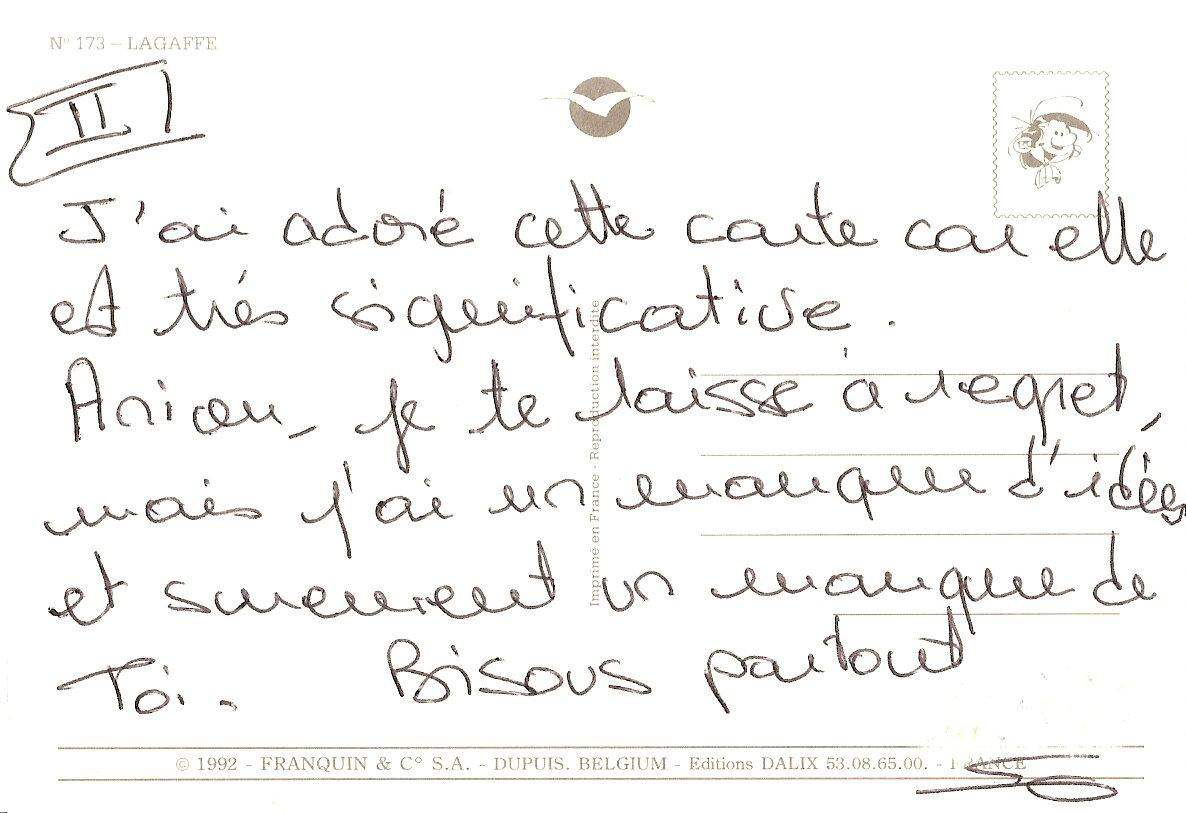 N° 173 – LAGAFFE
II
J'ai adoré cette carte car elle
est trés significative.
je te laisse à regret,
mais j'ai un manque d'idées
et surement un manque de
Toi. Bisous partout
Imprimé en France - Reproduction interdite
© 1992 - FRANQUIN & C° S.A. - DUPUIS. BELGIUM - Editions DALIX 53.08.65.00. - FRANCE